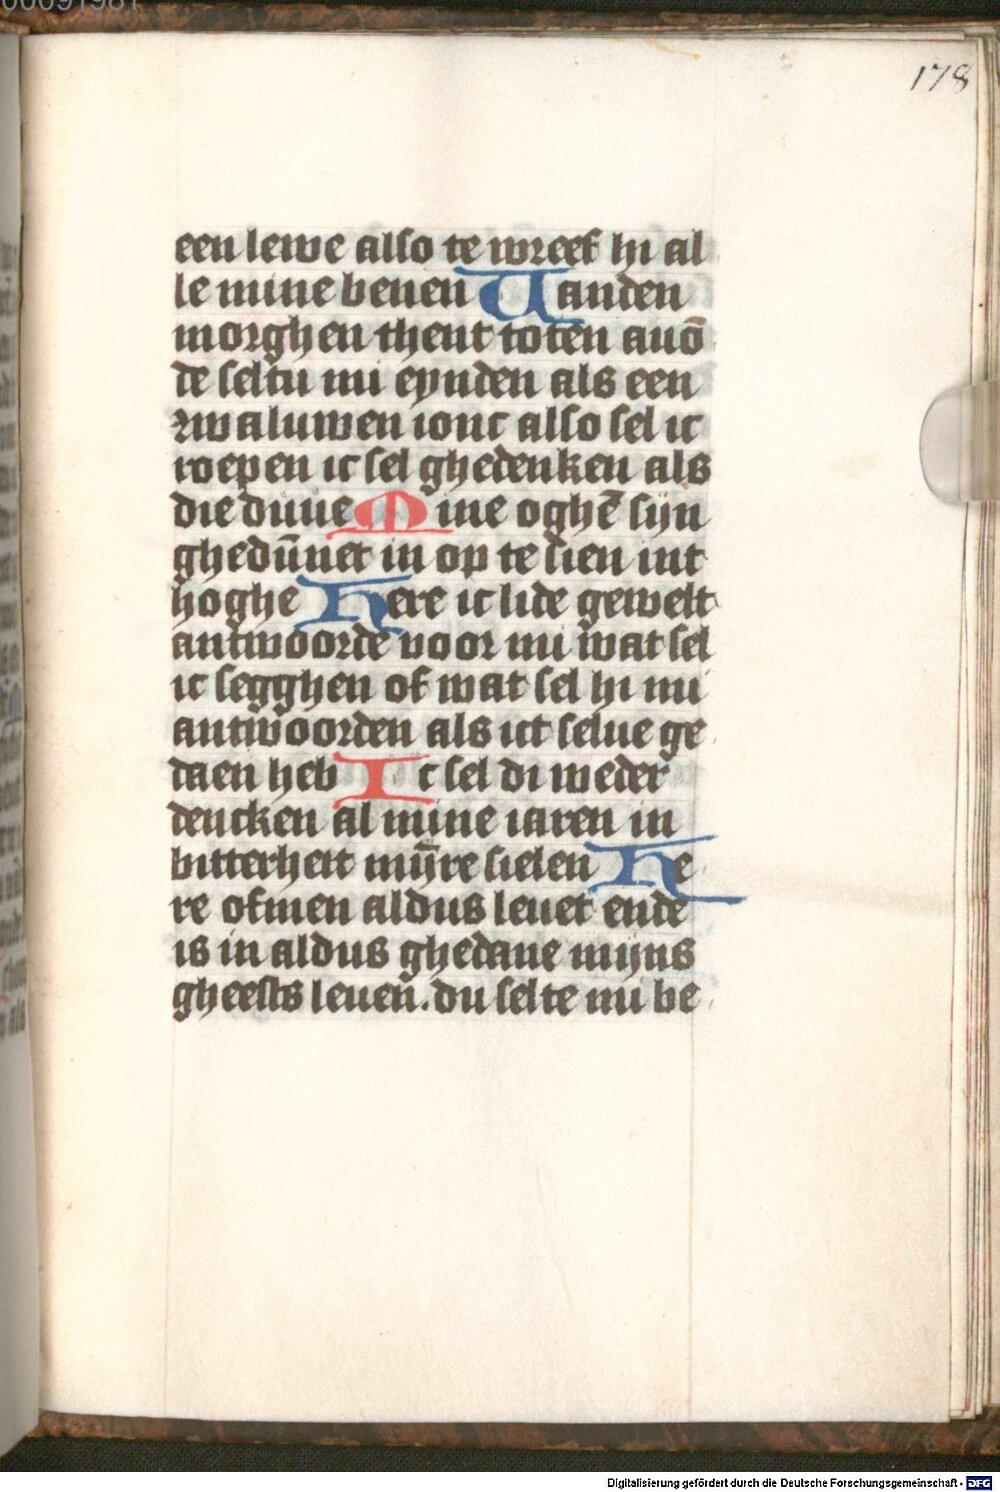 178
een lewe also te wreef hi al
le mine benen Uanden
morghen thent toten auō
de seltu mi eynden als een
zwaluwen ionc also sel ic
roepen ic sel ghedenken als
die duue Mine oghē sijn
ghedūnet in op te sien int
hoghe Here ic lide gewelt
antwoorde voor mi wat sel
ic segghen of wat sel hi mi
antwoorden als ict selue ge
daen heb Ic sel di weder
dencken al mine iaren in
bitterheit mȳre sielen He
re ofmen aldus leuet ende
is in aldus ghedane mijns
gheests leuen̄. du selte mi be
Digitalisierung gefördert durch die Deutsche Forschungsgemeinschaft - DFG